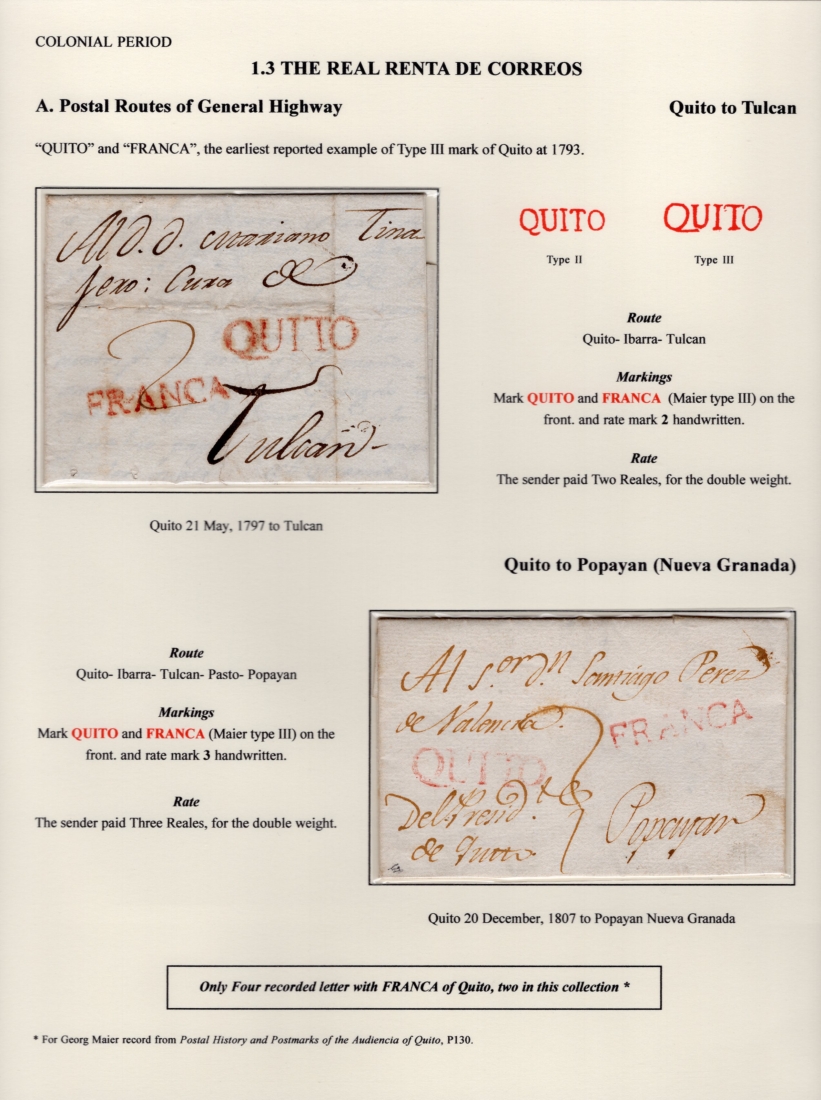 COLONIAL PERIOD
1.3 THE REAL RENTA DE CORREOS
A. Postal Routes of General Highway
Quito to Tulcan
“QUITO” and “FRANCA”, the earliest reported example of Type III mark of Quito at 1793.
Al D. D. Mariano Tina
jero: Cura de
QUITO
2
FRANCA
Tulcan
QUITO
QUITO
Type II
Type III
Route
Quito- Ibarra- Tulcan
Markings
Mark QUITO and FRANCA (Maier type III) on the
front. and rate mark 2 handwritten.
Rate
The sender paid Two Reales, for the double weight.
Quito 21 May, 1797 to Tulcan
Quito to Popayan (Nueva Granada)
Route
Quito- Ibarra- Tulcan- Pasto- Popayan
Markings
Mark QUITO and FRANCA (Maier type III) on the
front. and rate mark 3 handwritten.
Rate
The sender paid Three Reales, for the double weight.
Al S.or D.n Santiago Perez
de Valencia.
FRANCA
QUITO
3
Del Presid.te
de Quito
Popayan
Quito 20 December, 1807 to Popayan Nueva Granada
Only Four recorded letter with FRANCA of Quito, two in this collection *
* For Georg Maier record from Postal History and Postmarks of the Audiencia of Quito, P130.